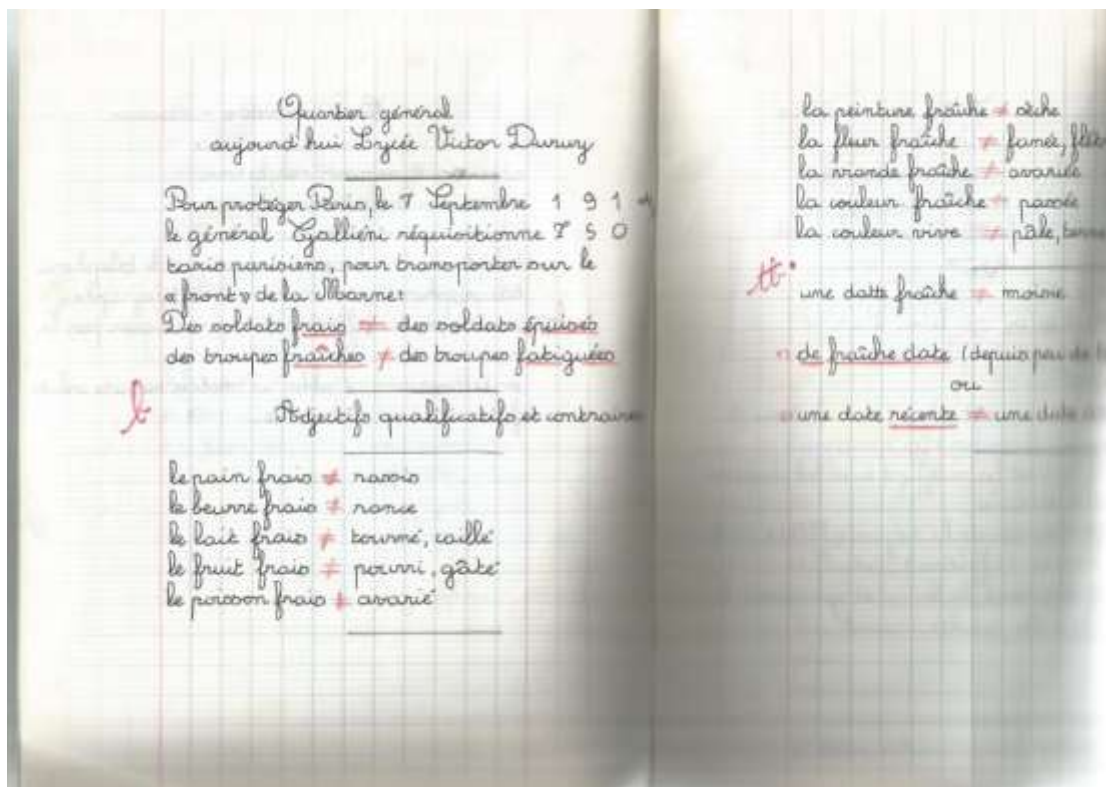 Quartier général
aujourd'hui Lycée Victor Duruy
Pour protéger Paris, le 7 Septembre 1 9 1 4
le général Galliéni réquisitionne 7 5 0
taxis parisiens, pour transporter sur le
« front » de la Marne:
Des soldats frais ≠ des soldats épuisés
des troupes fraîches ≠ des troupes fatiguées
b
Adjectifs qualificatifs et contraires
le pain frais ≠ rassis
le beurre frais ≠ rance
le lait frais ≠ tourné, caillé
le fruit frais ≠ pourri, gâté
le poisson frais ≠ avarié
la peinture fraîche ≠ sèche
la fleur fraîche ≠ fanée,
la viande fraîche ≠ avariée
la couleur fraîche ≠ passée
la couleur vive ≠ pâle,
tt.
une datte fraîche ≠ moisie
de fraîche date (depuis peu de
ou
une date récente ≠ une date